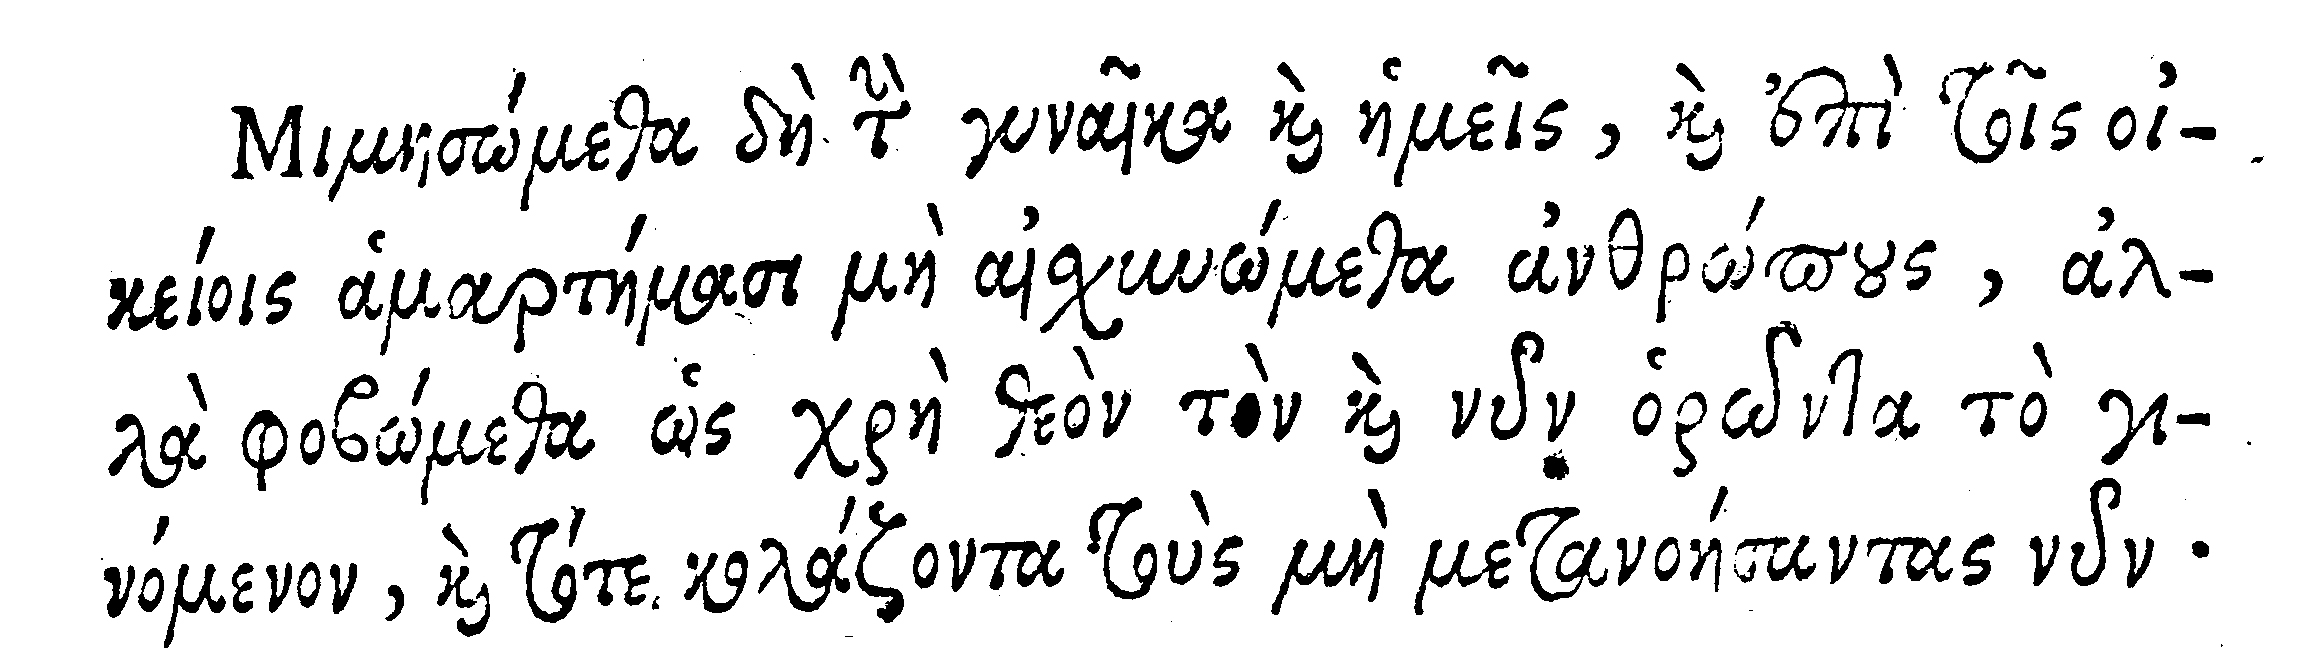 Μιμησώμεθα δὴ τὴν γυναῖκα καὶ ἡμεῖς, καὶ ἐπὶ τοῖς οἰ-
κείοις ἁμαρτήμασι μὴ αἰσχυνώμεθα ἀνθρώπους, ἀλ-
λὰ φοβώμεθα ὡς χρὴ θεὸν τὸν καὶ νῦν ὁρῶντα τὸ γι-
νόμενον, καὶ τότε κολάζοντα τοὺς μὴ μετανοήσαντας νῦν·